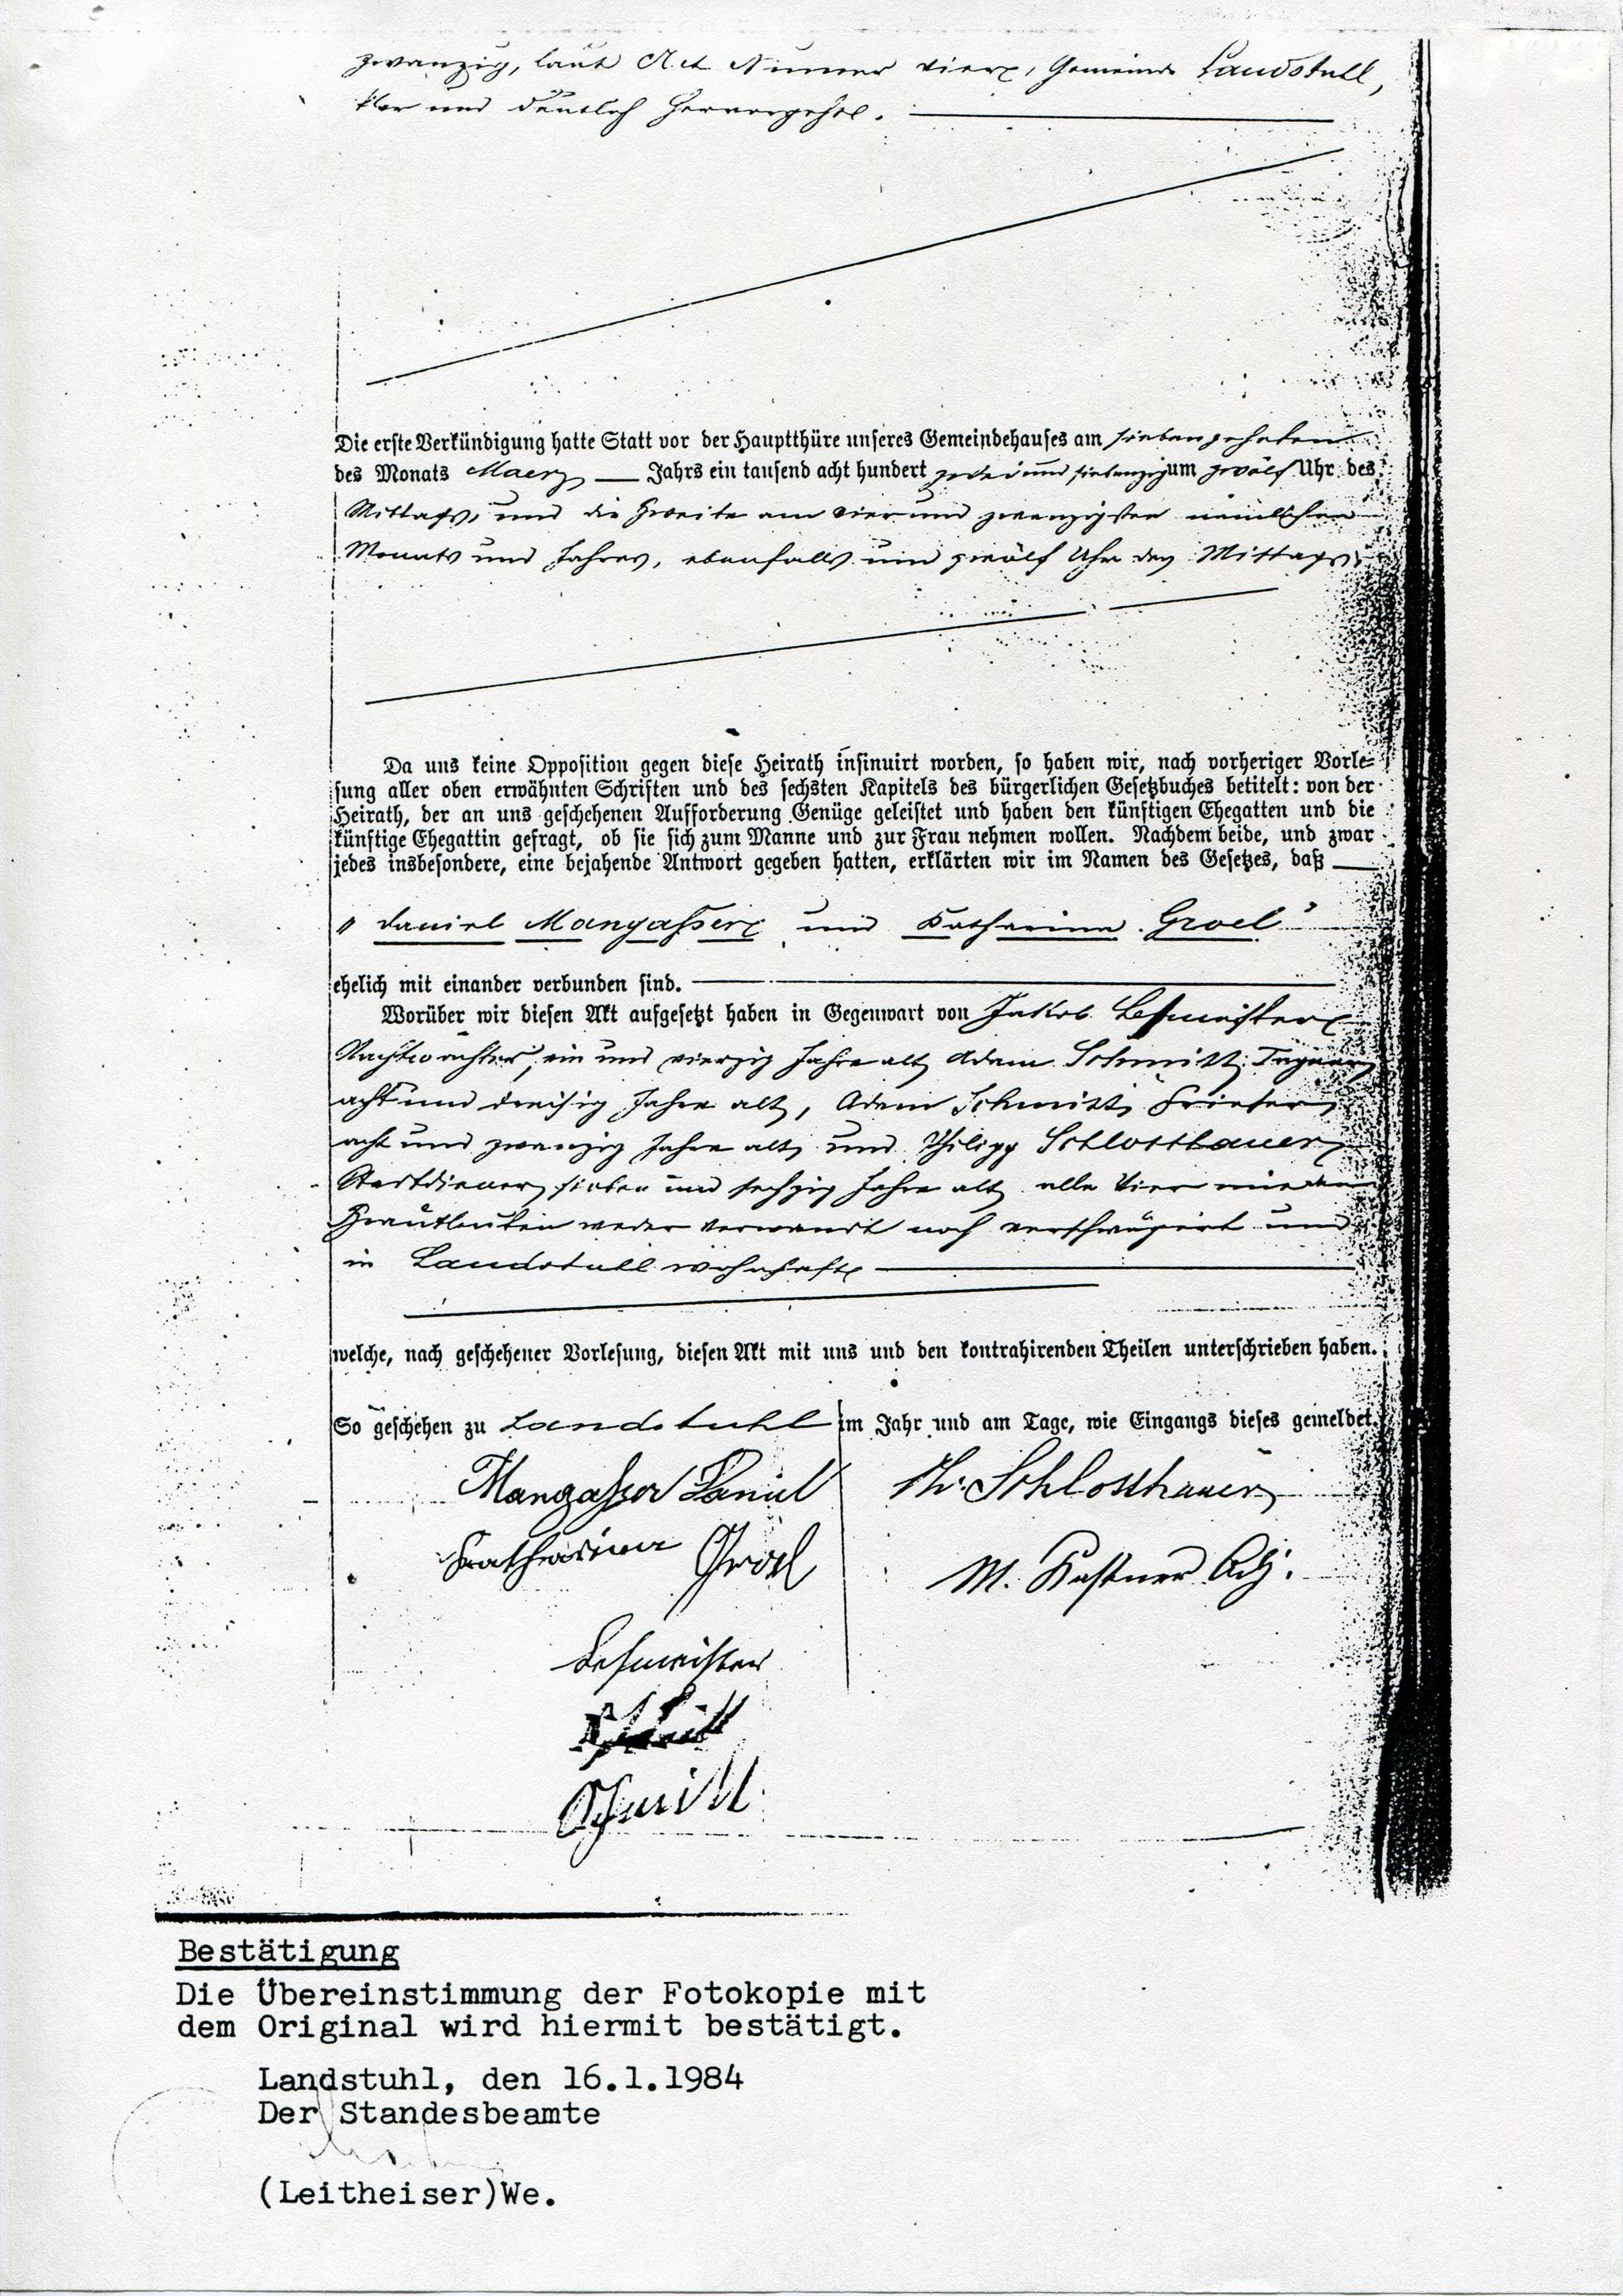 zwanzig, laut Act Numer vier, Gemeinde Landstuhl,
klar und deutlich hervorgeht.
Die erste Verkündigung hatte Statt vor der Hauptthüre unseres Gemeindehauses am siebenzehnten
des Monats Maerz Jahrs ein tausend acht hundert zwei und siebenzig um zwölf Uhr des
Mittags, und die Zweite am vier und zwanzigsten nämlichen
Monats und Jahres, ebenfalls um zwölf Uhr des Mittags,
Da uns keine Opposition gegen diese Heirath insinuirt worden, so haben wir, nach vorheriger Vorle-
sung aller oben erwähnten Schriften und des sechsten Kapitels des bürgerlichen Gesetzbuches betitelt: von der
Heirath, der an uns geschehenen Aufforderung Genüge geleistet und haben den künftigen Ehegatten und die
künftige Ehegattin gefragt, ob sie sich zum Manne und zur Frau nehmen wollen. Nachdem beide, und zwar
jedes insbesondere, eine bejahende Antwort gegeben hatten, erklärten wir im Namen des Gesetzes, daß
" Daniel Mangaßer und Katharina Groel "
ehelich mit einander verbunden sind.
Worüber wir diesen Akt aufgesetzt haben in Gegenwart von Jakob Leßmeister
Nachtwächter, ein und vierzig Jahre alt, Adam Schmitt,
acht und dreißig Jahre alt, Adam Schmitt,
acht und zwanzig Jahre alt, und Philipp Schlosshauer,
Stadtdiener, sieben und sechzig Jahre alt, alle Vier mit den
Brautleuten weder verwandt noch verschwägert und
in Landstuhl wohnhaft
welche, nach geschehener Vorlesung, diesen Akt mit uns und den kontrahirenden Theilen unterschrieben haben.
So geschehen zu Landstuhl im Jahr und am Tage, wie Eingangs dieses gemeldet.
Mangaßer Daniel
Katharina Groel
Leßmeister
Schmitt
Schmitt
Ph. Schlosshauer
M. Kastner Adj.
Bestätigung
Die Übereinstimmung der Fotokopie mit
dem Original wird hiermit bestätigt.
Landstuhl, den 16.1.1984
Der Standesbeamte
(Leitheiser)We.